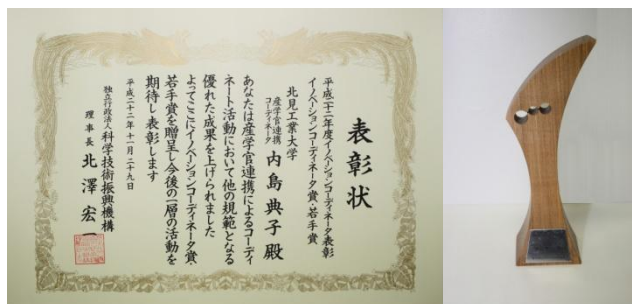 表彰状
平成二十二年度イノベーションコーディネータ表彰
イノベーションコーディネータ賞・若手賞
北見工業大学
産学官連携
コーディネータ
内島典子殿
あなたは産学官連携によるコーディ
ネート活動において他の規範となる
優れた成果を上げられました
よってここにイノベーションコーディネータ賞・
若手賞を贈呈し今後の一層の活動を
期待し表彰します
平成二十二年十一月二十九日
独立行政法人科学技術振興機構
理事長 北澤宏一